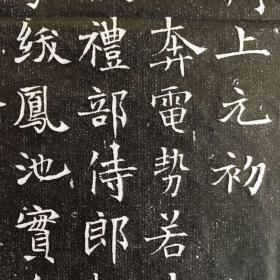 上元初
奔電勢若
禮部侍郎
綬鳳池實